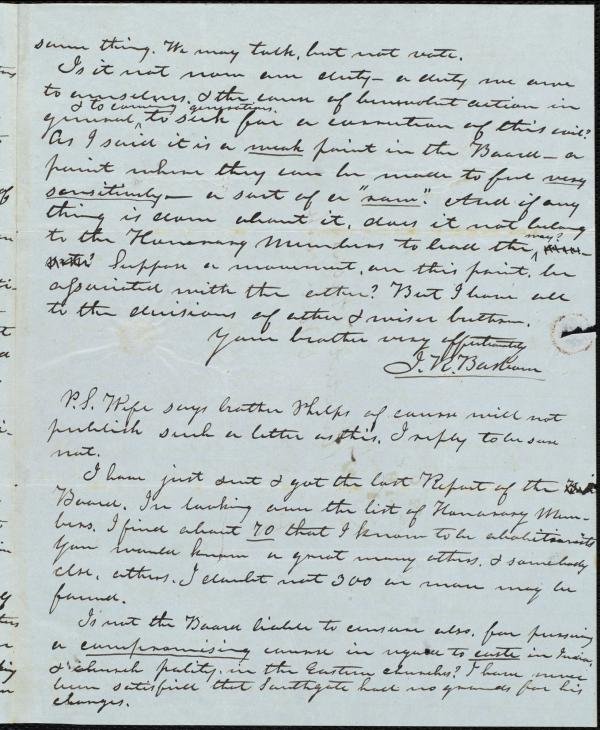 same thing. We may talk, but not vote.
Is it not now our duty — a duty we owe
to ourselves, & the cause of benevolent action in
& to coming generations
general, to seek for a correction of this evil?
As I said it is a weak point in the Board — a
point where they can be made to feel very
sensitively — a sort of a "raw". And if any
thing is done about it, does it not belong
to the Honorary Members to lead the way?
Suppose a movement, on this point, be
associated with the other? But I leave all
to the decisions of other & wiser brethren.
Your brother very affectionately
J. K.
P.S. Wife says brother Phelps of course will not
publish such a letter as this. I reply to be sure
not.
I have just sent & got the last Report of the
Board. In looking over the list of Honorary Mem-
bers. I find about 70 that I know to be abolitionists
You would know a great many others, & somebody
else, others. I doubt not 300 or more may be
found.
Is not the Board liable to censure also, for pursuing
a compromising course in regard to caste in India,
& church polity, in the Eastern churches? I have never
been satisfied that Southgate had no grounds for his
charges.